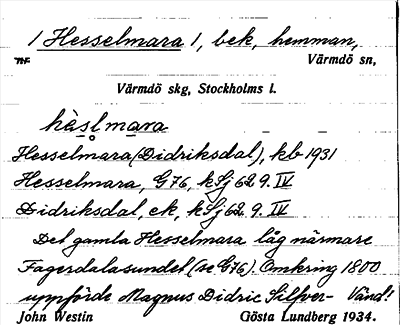 1 Hesselmara 1, bek, hemman,
Värmdö sn,
Värmdö skg, Stockholms l.
hèsl mara
Hesselmara (Didriksdal), kb 1931
Hesselmara, G76, kSj 62 9. IV
Didriksdal, ek, kSj 62 9. IV
Det gamla Hesselmara låg närmare
Fagerdalasundet (se G76). Omkring 1800
uppförde Magnus Didric Silfver- Vänd!
John Westin Gösta Lundberg 1934.